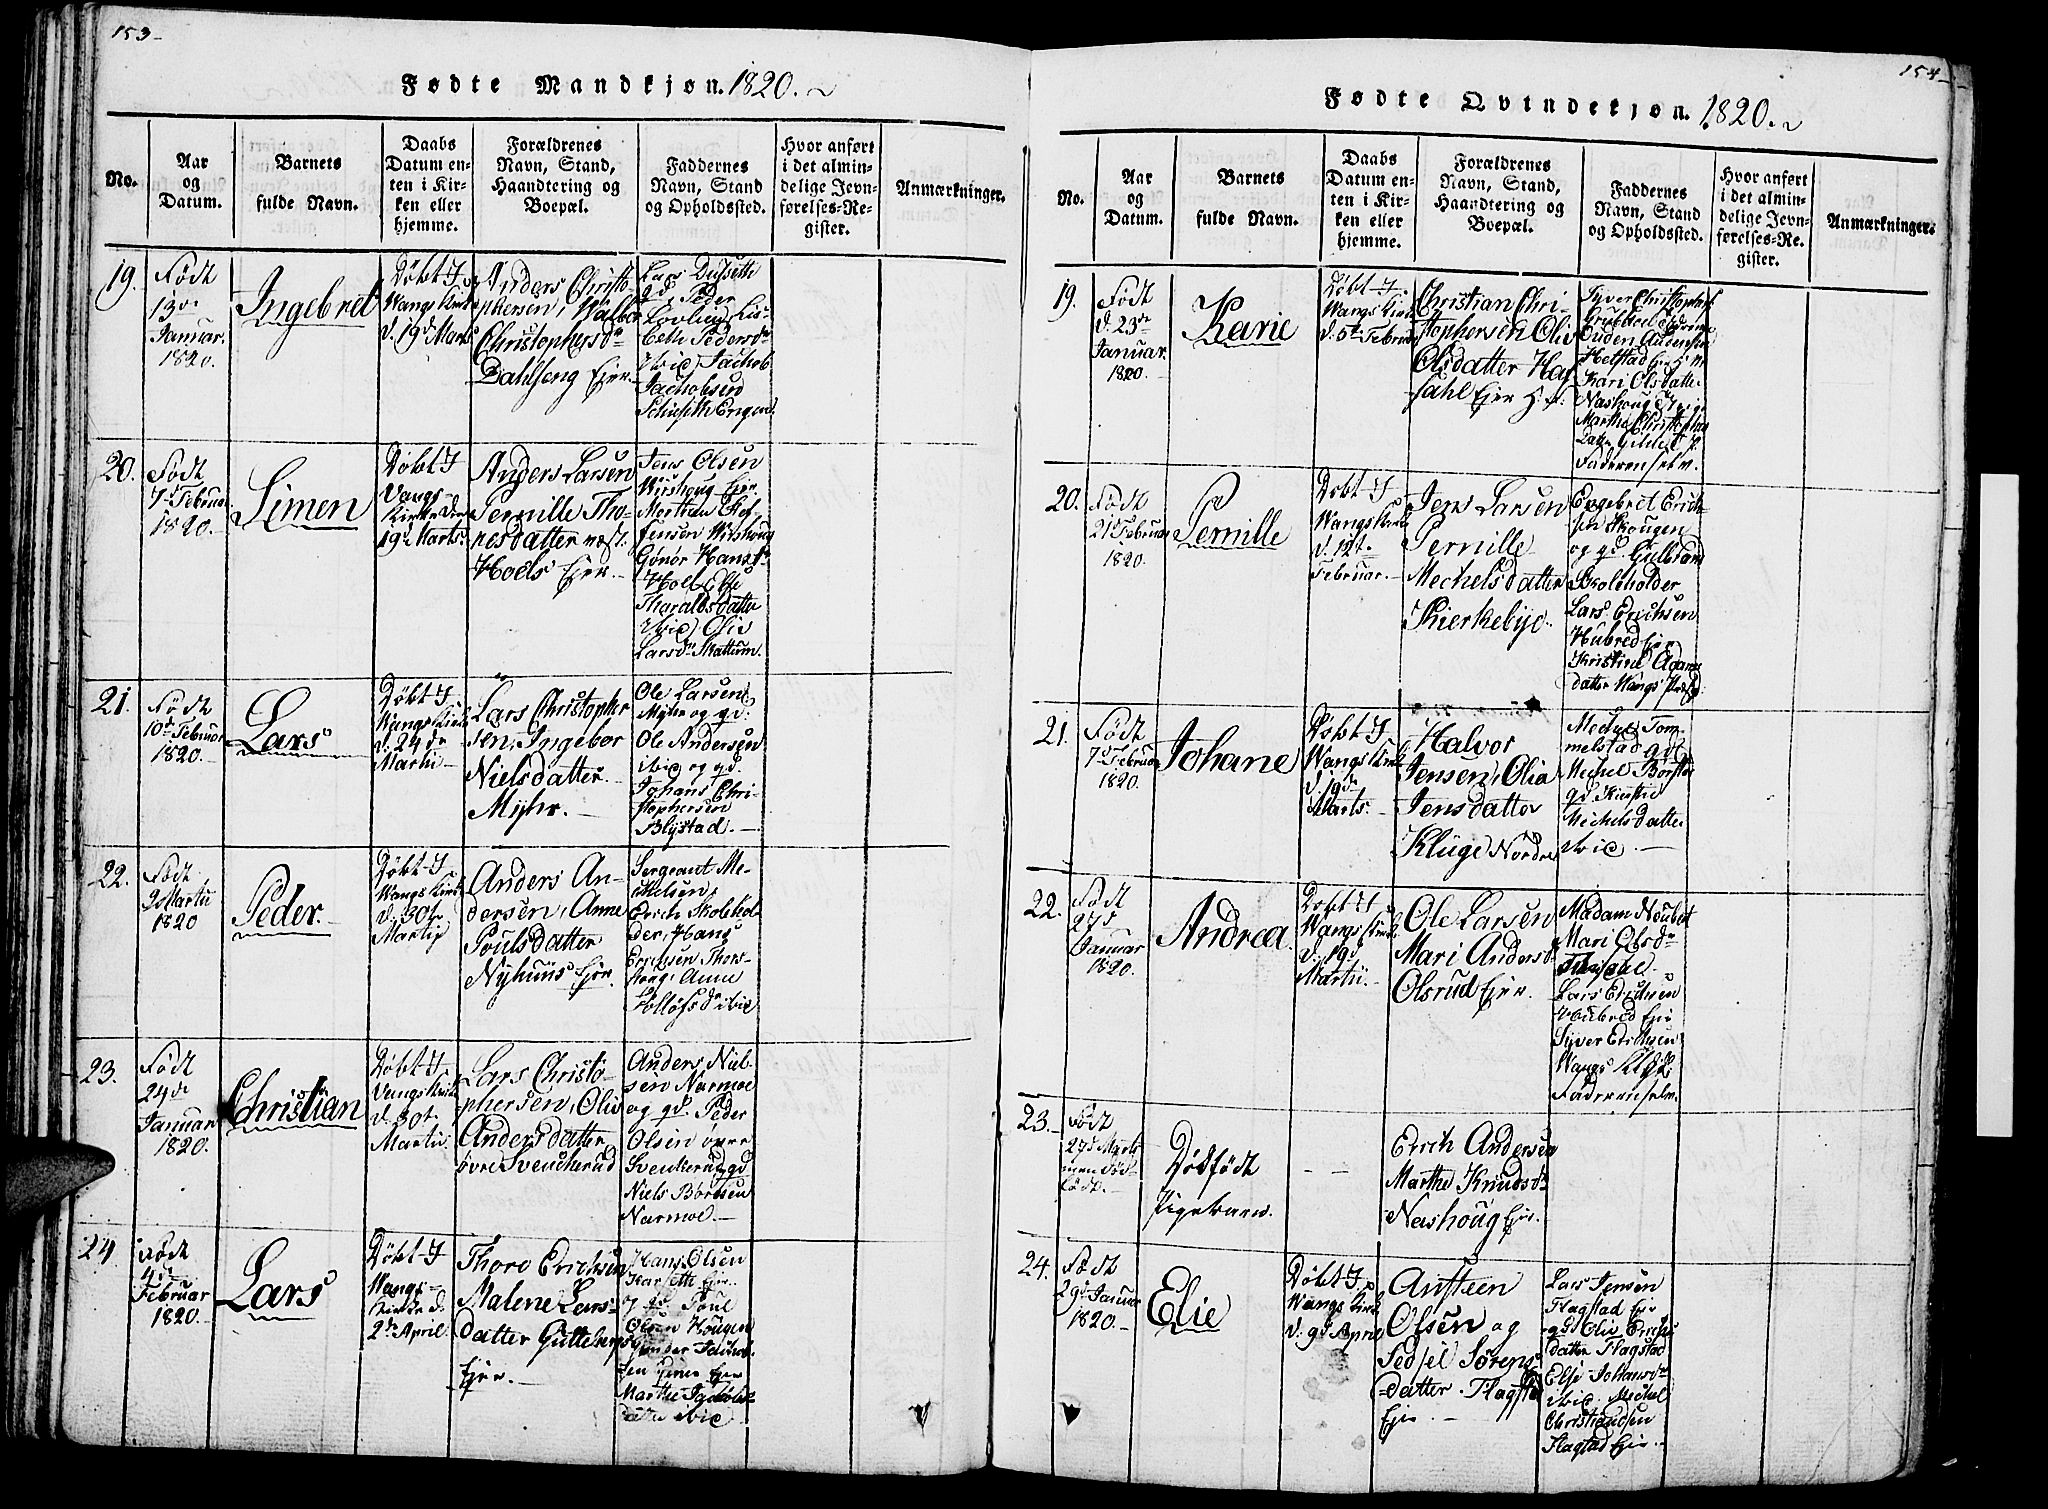 153-
Fødte Mandkjøn. 1820.
No.
Aar
og
Datum.
Barnets
fulde Navn.
Daabs
Datum en-
ten i Kir-
ken eller
hjemme.
Forældrenes
Navn, Stand,
Haandtering og
Boepæl.
Faddernes
Navn, Stand
og Opholdssted.
Hvor anført
i det almin-
delige Jevn-
førelses-Re-
gister.
Anmærkninger.
19.
Født
13de
Januar.
1820.
Ingebret
Døbt I
Wangs Kirke
d. 19d Marts
Anders Christo-
phersen, Walbor
Christophersdr
Dahlseng Ejer.
Lars
gd. Peder
Lis-
beth Pedersdr
ibid, Jachob
Jachobsen
Engen
20.
Født
7d Februar
1820.
Simen
Døbt I
Vangs-
Kirke den
19d Marts.
Anders Larsen
Pernille Tho-
resdatter
Hoels Ejer.
Jens Olsen
Wirshoug Ejer.
Morthen
Jensen Wirshoug
Gønør Hansdr
Hoel
Tharaldsdatter
ibid, Oliv
Larsdr Skattum.
21.
Født
10d Februar
1820.
Lars
Døbt I
Wangs Kirke
d. 24de
Martii
Lars Christopher
sen, Ingebor
Nielsdatter.
Myhr.
Ole Larsen
Myhr og gd.
Ole Andersen
ibid og gd.
Johans Chri-
stophersen
Blystad.
22.
Født
2d Martii
1820
Peder.
Døbt I
Wangs Kirke
d. 30te
Martii
Anders An-
dersen, Anne
Poulsdatter
Nyhuus Ejer.
Sergeant Me-
chelsen,
Erich Skolehol-
der, Hans
Erichsen Thors-
houg, Anne
ibid
23.
Født
24de
Januar
1820.
Christian
Døbt I
Vangs Kirke
d. 30t.
Martii.
Lars Christo-
phersen, Oliv
Andersdatter
øvre Svenkerud
Anders Niel-
sen Narmoe
og gd. Peder
Olsen øvre
Svenkerud gd
Niels Børresen
Narmoe.
24
Født
4de
Februar
1820.
Lars
Døbt I
Wangs-
Kirke d.
2de April.
Thore Erichsen
Malene Lars-
datter
Ejer.
Hans Olsen
Ejer.
og gd. Poul
Olsen Hougen
Ejer
Marthe Jachobs-
datter ibid
154-
Fødte Qvindekjøn. 1820.
No.
Aar
og
Datum.
Barnets
fulde Navn.
Daabs
Datum en-
ten i Kir-
ken eller
hjemme.
Forældrenes
Navn, Stand,
Haandtering og
Boepæl.
Faddernes
Navn, Stand
og Opholdssted.
Hvor anført
i det almin-
delige Jevn-
førelses-Re-
gister.
Anmærkninger.
19.
Født
d. 23de
Januar.
1820.
Karie
Døbt I
Wangs Kirke
d. 5te Februar
Christian Chri-
stophersen Oliv
Olsdatter
Ejer
Syver Christophers
Kari Olsdatter
Nashoug
Marthe Christophers
datter
Faderen selv.
20.
Født
21d Februar
1820.
Pernille
Døbt I
Wangs Kirke
d. 12t.
Februar.
Jens Larsen
Pernille
Mechelsdatter
Kierkebye.
Engebret Erich-
sen Skougen
og gd. Gulbrand
Skoleholder
Lars Erichsen
Hubred Ejer
Kristine Adams
datter Wangs
21.
Født
7d Februar
1820.
Johane
Døbt I
Wangs Kirke
d. 19de
Marts.
Halvor
Jensen, Olia
Jensdatter
Kluge Nordre
Mechel Tom-
melstad gd
Mechel
gd Kirstie
Mechelsdatter
ibid.
22.
Født
27d
Januar
1820.
Andrea.
Døbt I
Wangs Kirke
d. 19d
Martii.
Ole Larsen
Mari Andersd.
Olsrud Ejer.
Madam Neubert
Mari Olsdr
Lars Erichsen
Houbred Ejer
Syver Erichsen
Wangs
Faderen selv.
23.
Født
27d Marts
men død-
født.
Dødfødt
Pigebarn.
Erich Andersen
Marthe Knudsdr
Nashoug Ejer.
24.
Født
29d Januar
1820.
Elie
Døbt I
Wangs Kirke
d. 9d April
Ansteen
Olsen og
Sedsel Sørens-
datter Flagstad
Ejer.
Lars Jensen
Flagstad Ejer
gd Oliv Erichs-
datter Flagstad
Elie Johansdr
ibid. Mechel
Christiansen
Flagstad Ejer.